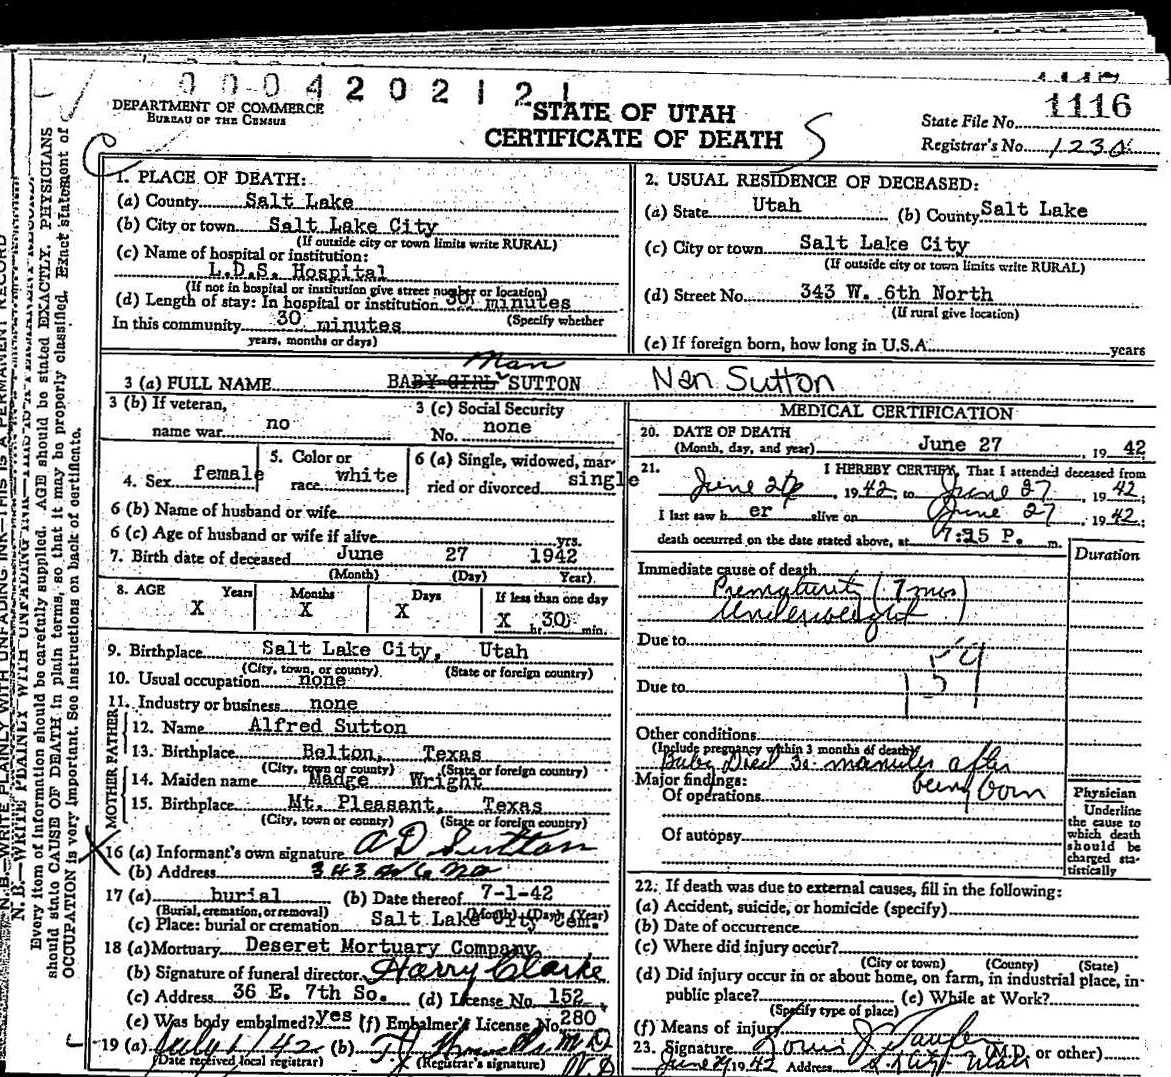 0 0 0 4 2 0 2 1 2 1
1116
DEPARTMENT OF COMMERCE
BUREAU OF THE CENSUS
STATE OF UTAH
CERTIFICATE OF DEATH
S
State File No. 1116
Registrar's No. 1230
1. PLACE OF DEATH:
(a) County Salt Lake
(b) City or town Salt Lake City
(If outside city or town limits write RURAL)
(c) Name of hospital or institution:
L.D.S. Hospital
(If not in hospital or institution give street number or location)
(d) Length of stay: In hospital or institution 30 minutes
(Specify whether
In this community 30 minutes
years, months or days)
2. USUAL RESIDENCE OF DECEASED:
(a) State Utah (b) County Salt Lake
(c) City or town Salt Lake City
(If outside city or town limits write RURAL)
(d) Street No. 343 W. 6th North
(If rural give location)
(e) If foreign born, how long in U.S.A. years
3 (a) FULL NAME BABY GIRL SUTTON Nan Sutton
3 (b) If veteran,
name war no
3 (c) Social Security
No. none
4. Sex female
5. Color or
race white
6 (a) Single, widowed, mar-
ried or divorced single
6 (b) Name of husband or wife
6 (c) Age of husband or wife if alive yrs.
7. Birth date of deceased June 27 1942
(Month) (Day) Year)
8. AGE Years Months Days If less than one day
X X X X hr. 30 min.
9. Birthplace Salt Lake City, Utah
(City, town, or county) (State or foreign country)
10. Usual occupation none
11. Industry or business none
FATHER
12. Name Alfred Sutton
13. Birthplace Belton, Texas
(City, town or county) (State or foreign country)
MOTHER
14. Maiden name Madge Wright
15. Birthplace Mt. Pleasant, Texas
(City, town or county) (State or foreign country)
16 (a) Informant's own signature A D Sutton
(b) Address 343 W 6 No
17 (a) burial (b) Date thereof 7-1-42
(Burial, cremation, or removal) (Month) (Day) (Year)
(c) Place: burial or cremation Salt Lake City Cem.
18 (a) Mortuary Deseret Mortuary Company
(b) Signature of funeral director Harry Clarke
(c) Address 36 E. 7th So. (d) License No. 152
(e) Was body embalmed? yes (f) Embalmer's License No. 280
19 (a) July 1/42 (b) M D
(Date received local registrar) (Registrar's signature)
MEDICAL CERTIFICATION
20. DATE OF DEATH
(Month, day, and year) June 27, 1942
21. I HEREBY CERTIFY, That I attended deceased from
June 26, 1942 to June 27, 1942;
I last saw h er alive on June 27, 1942;
death occurred on the date stated above, at 7:25 P. m.
Duration
Immediate cause of death
Prematurity (7 mos)
Underweight
Due to
159
Due to
Other conditions
(Include pregnancy within 3 months of death)
Baby Died 30 manutes after
being born
Major findings:
Of operations
Of autopsy
Physician
Underline
the cause to
which death
should be
charged sta-
tistically
22. If death was due to external causes, fill in the following:
(a) Accident, suicide, or homicide (specify)
(b) Date of occurrence
(c) Where did injury occur?
(City or town) (County) (State)
(d) Did injury occur in or about home, on farm, in industrial place, in-
public place? (e) While at Work?
(Specify type of place)
(f) Means of injury
23. Signature Louis J. (M.D. or other)
June 1942 Address S. L. City Utah
N. B.—WRITE PLAINLY WITH UNFADING INK—THIS IS A PERMANENT RECORD
Every item of information should be carefully supplied. AGE should be stated EXACTLY. PHYSICIANS
should state CAUSE OF DEATH in plain terms, so that it may be properly classified. Exact statement of
OCCUPATION is very important. See instructions on back of certificate.